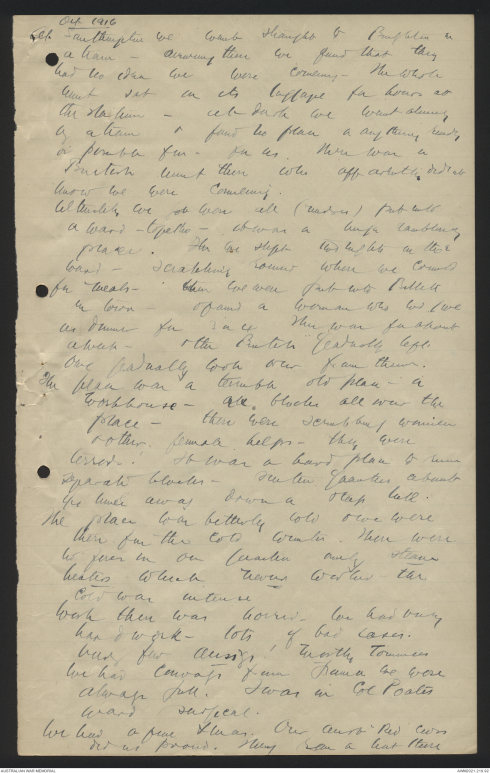 Oct 1916
At Southampton we went straight to Brighton in
a train - arriving there we found that they
had no idea we were coming. The whole
unit sat on its luggage for hours at
the station - at dark we went along
by a tram & found no place or anything ready
or possible for us. There was a
British unit there who apparently didn't
know we were coming.
Ultimately we were all (nurses) put into
a ward - together - it was a huge rambling
place. There we slept nights in this
ward - scratching round where we could
for meals - then we were put into Billets
in town - & found a woman who
us dinner for. This was for about
a week - & the British gradually left
One gradually took over from them.
The place was a terrible old place - a
Workhouse - blocks all over the
place - there were scrubbing women
& other female helps - they were
terrors. It was a hard place to run
separate blocks - Sisters Quarters about
five times away down a steep hill.
The place was bitterly cold & we were
there for the cold winter. There were
no fires in our Quarters only steam
heaters which never worked - the
cold was intense
Work there was horrid. We had very
hard work - lots of bad cases.
very few Aussies, mostly Tommies
We had convoys from France we were
always full. I was in Col Poates
ward surgical.
We had a fine Xmas. Our Aust Red Cross
did us proud. They ran a hut there
AUSTRALIAN WAR MEMORIAL